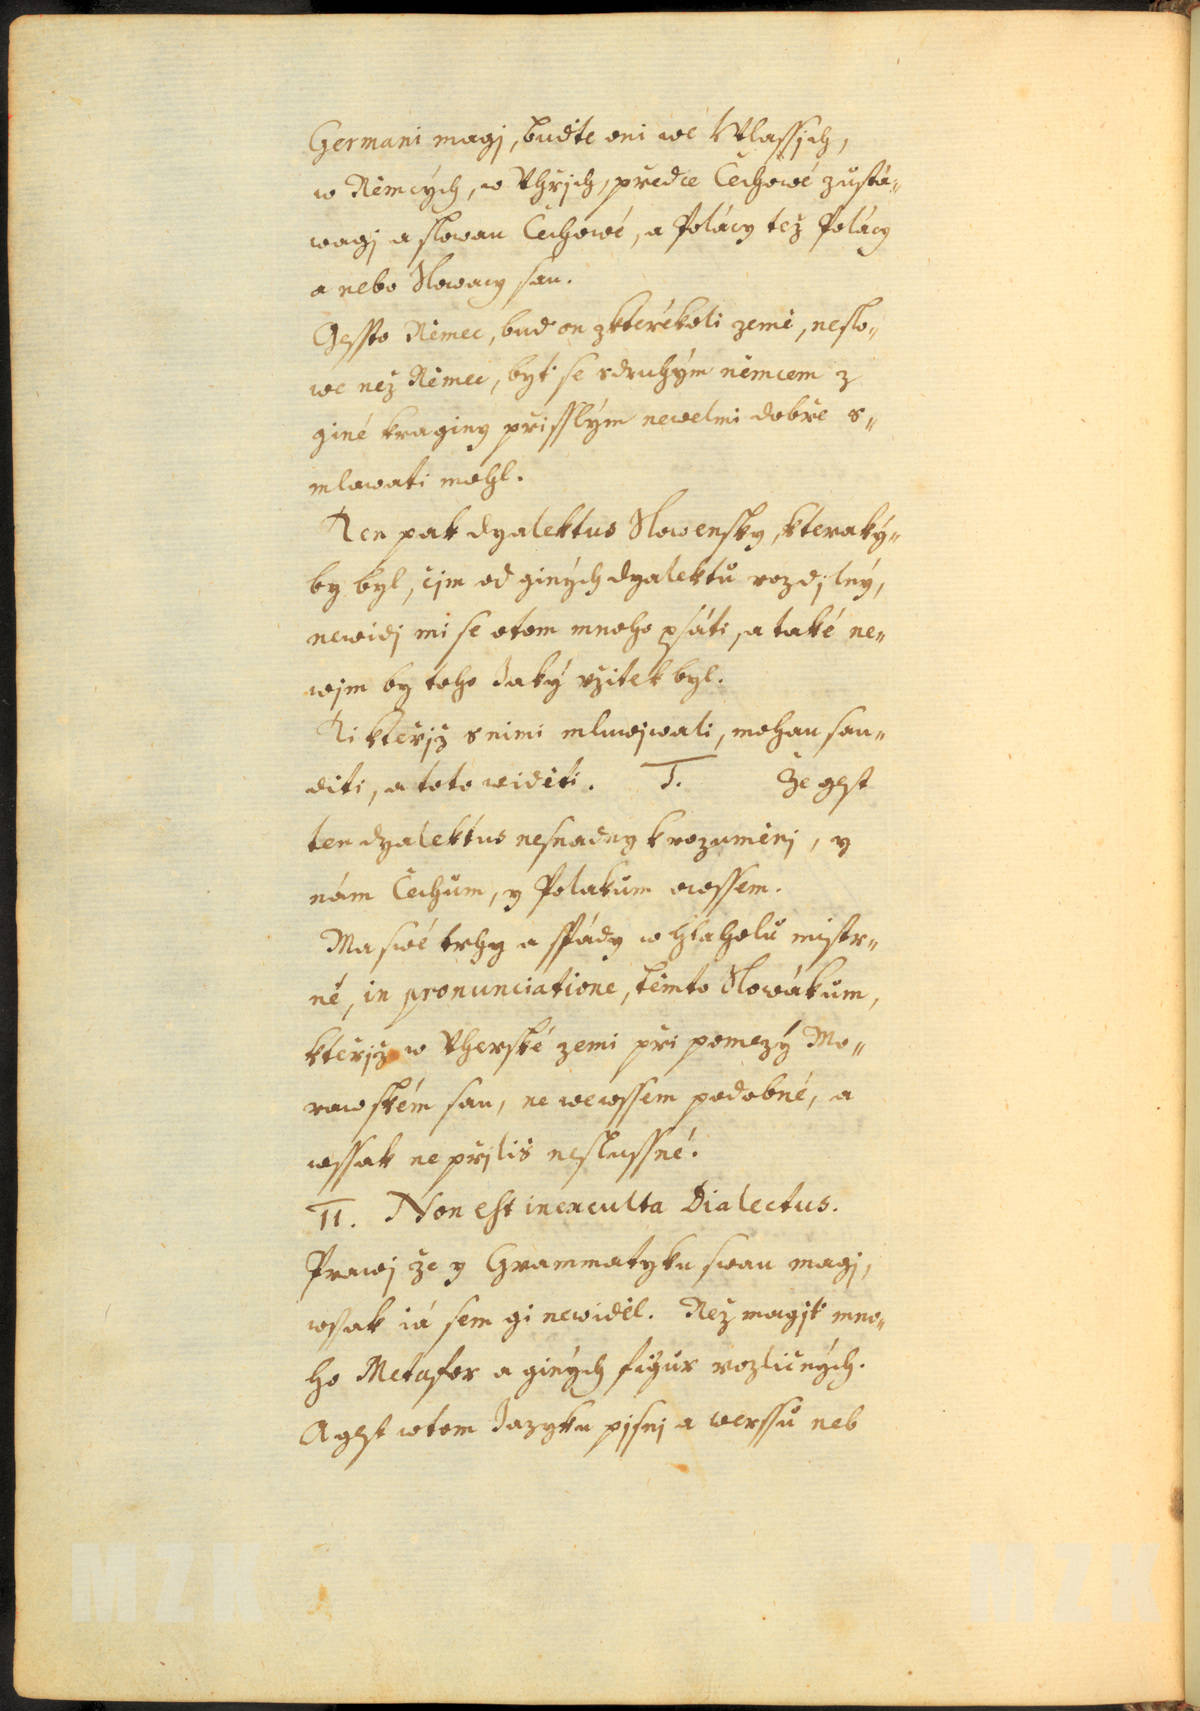 Germani magj, buďte oni we Wlassjch,
w Němcých, w Vhřjch, předce Čechowé zůstá„
wagj a slowau Čechowé, a Polácy též Polácy
a nebo Slowacy sau.
Gessto Němec, bud on zkterékoli země, neslo„
we než Němec, byť se sdruhým němcem z
giné kraginy přisslým newelmi dobře s„
mlauwati mohl.
Ten pak dyalektus Slowensky, kteraký„
by byl, čjm od giných dyalektů rozdjlný,
newidj mi se otom mnoho psáti, a také ne„
wjm by toho Jaký vžitek byl.
Ti kteřjž snimi mluwjwali, mohau sau„
diti, a toto widěti. I. Že gest
ten dyalektus nesnadny krozuměnj, y
nám Čechum, y Polakum owssem.
Ma swé trhy a spády w hlaholu mistr„
né, in pronunciatione, těmto Slowákum,
kteřjž w Vherské zemi při pomezý Mo„
rawském sau, ne wewssem podobné, a
wssak ne přjliš neslussné.
II. Non est inexculta Dialectus.
Prawj že y Grammatyku swau magj,
wsak iá sem gi newiděl. Než magjť mno„
ho Metafor a giných figur rozličných.
A gest wtom Jazyku pjsnj a werssů neb
MZK
MZK